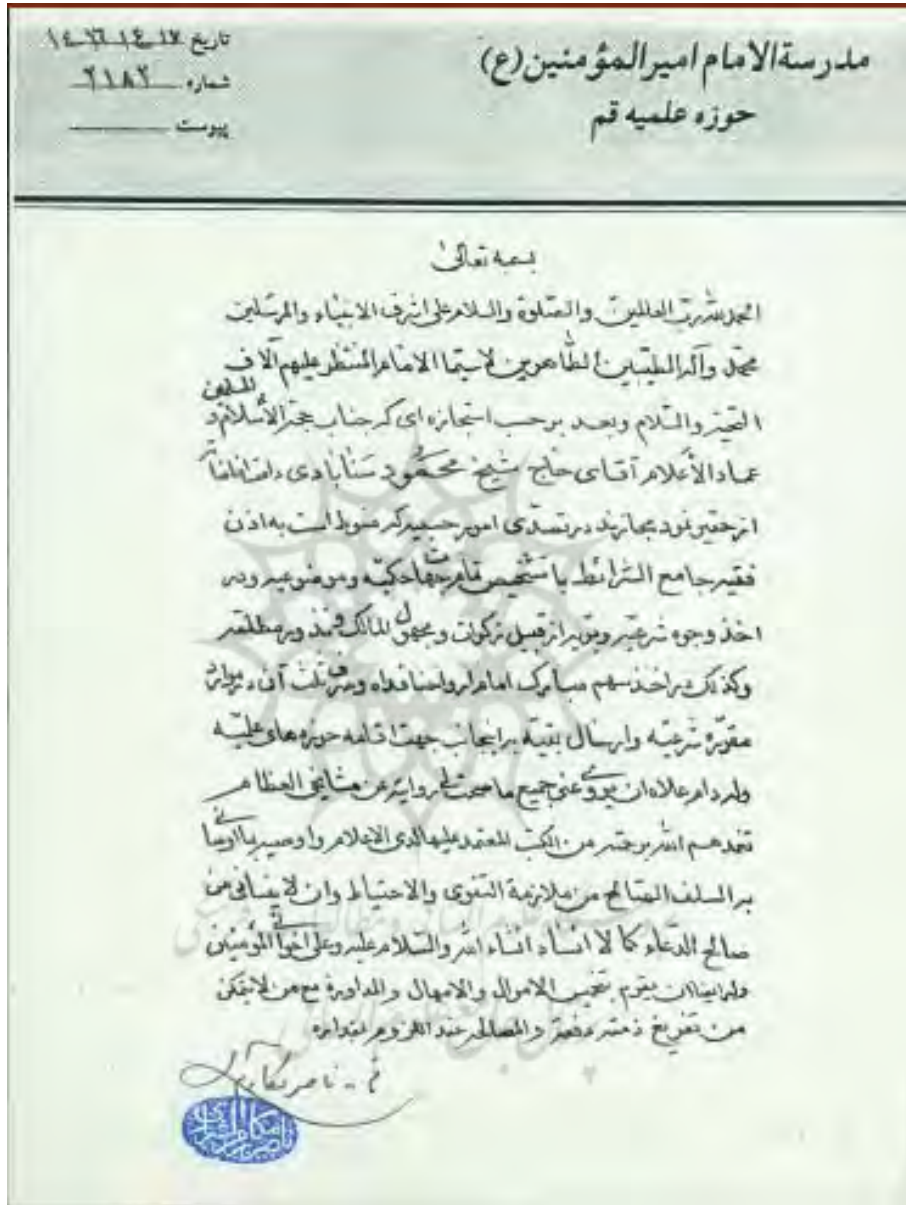 مدرسة الامام امیرالمؤمنین (ع)
حوزه علمیه قم
تاریخ
شماره ۲۱۸۲
پیوست
بسمه تعالی
الحمد لله رب العالمین والصلوة والسلام علی اشرف الانبیاء والمرسلین
محمد وآله الطیبین الطاهرین لاسیما الامام المنتظر علیهم آلاف
التحیة والسلام وبعد بر حسب استجازه ای که جناب حجة الاسلام والمسلمین
عماد الأعلام آقای حاج شیخ محمود سنابادی دامت افاضاته
از حقیر نمود مجازند در تصدی امور حسبیه که منوط است به اذن
فقیه جامع الشرائط با تشخیص تمام جهات حکمیه و موضوعیه و در
اخذ وجوه شرعیه از قبیل زکوات و مجهول المالک و نذور مطلقه
وکذلک در اخذ سهم مبارک امام ارواحنا فداه وصرف ثلث آن در موارد
مقرره شرعیه وارسال بقیه به اینجانب جهت اقامه حوزه های علمیه
وله دام علاه ان یروی عنی جمیع ما صحت لی روایته عن مشایخی العظام
تغمدهم الله برحمته من الکتب المعتمد علیها لدی الاعلام واوصیه بما اوصانی
به السلف الصالح من ملازمة التقوی والاحتیاط وان لا ینسانی من
صالح الدعاء کما لا انساه انشاء الله والسلام علیه وعلی اخواننا المؤمنین
وله ایضا ان یقوم بتخمیس الاموال والامهال والمداورة مع من لا یتمکن
من تفریغ ذمته دفعة والمصالحه عند اللزوم بمقداره
قم - ناصر مکارم
ناصر مکارم شیرازی